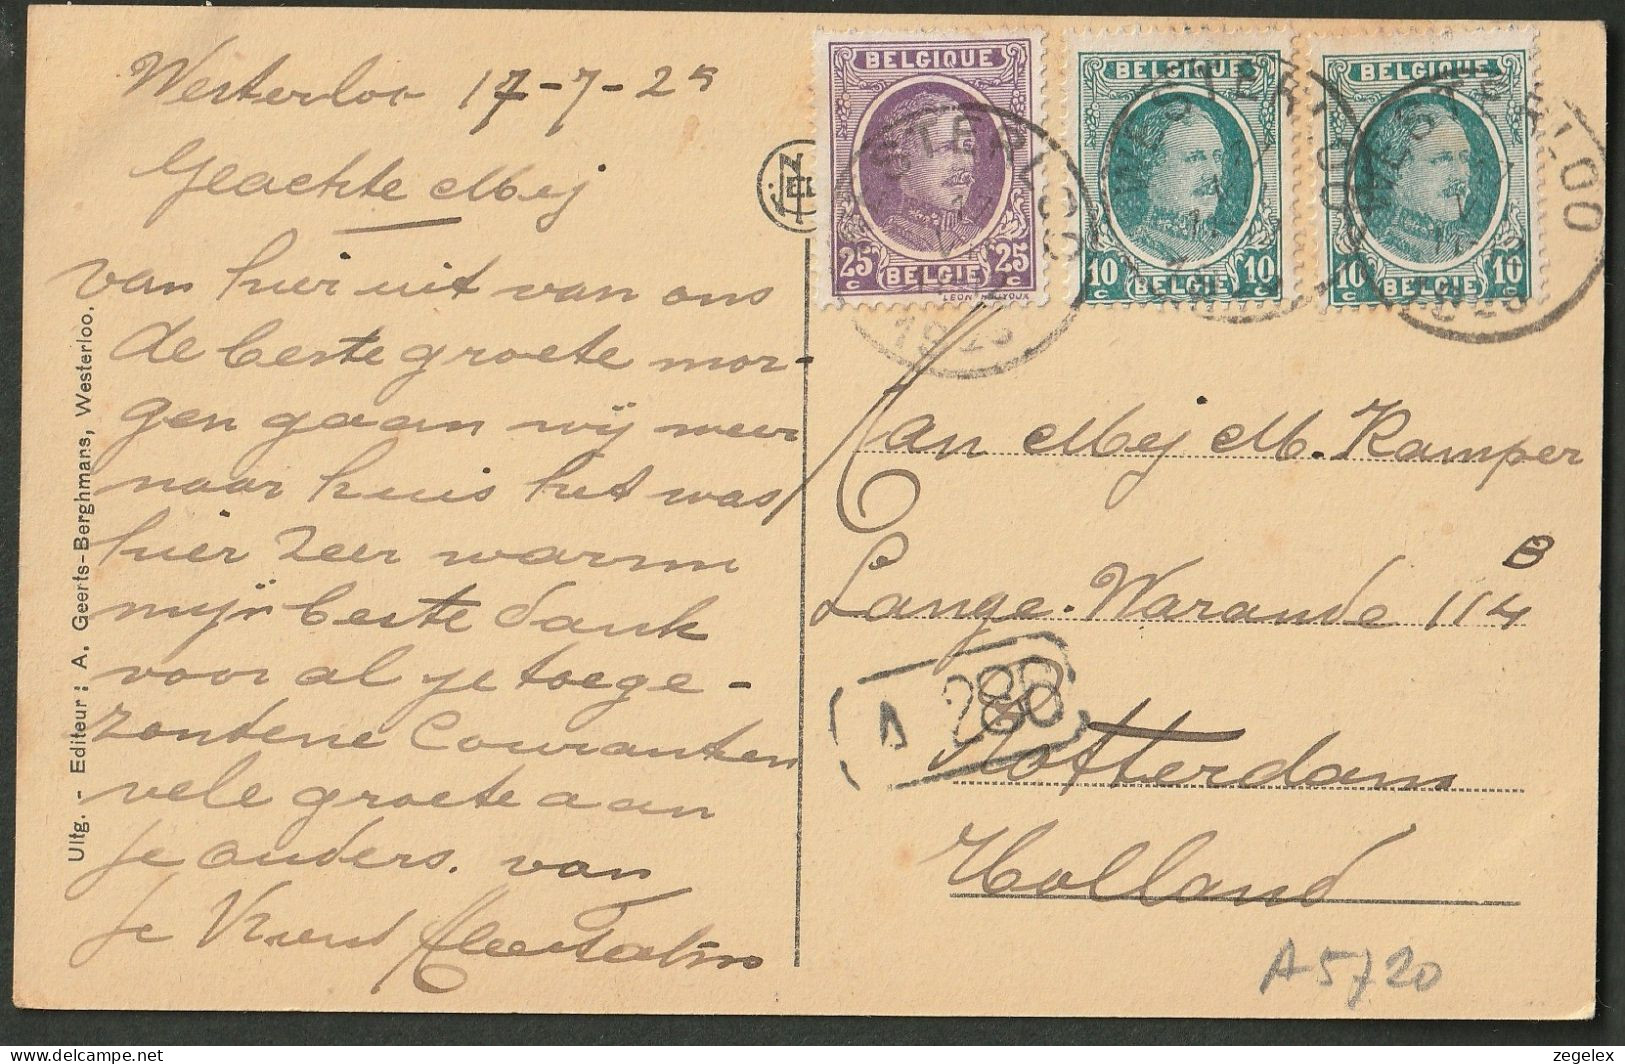 Westerloo 17-7-25
Geachte Mej
van hier uit van ons
de beste groete mor-
gen gaan wij weer
naar huis het was
hier zeer warm
mijn beste dank
voor al je toege-
zondene Couranten
vele groete aan
je ouders. van
je Vriend
Uitg. - Editeur : A. Geerts-Berghmans, Westerloo.
NELS
BELGIQUE
25 c BELGIE 25 c
LEON HOUYOUX
BELGIQUE
10 c BELGIE 10 c
BELGIQUE
10 c BELGIE 10 c
WESTERLOO
1925
WESTERLOO
1925
WESTERLOO
1925
Aan Mej M. Kamper
Lange-Warande 114 B
A 288
Rotterdam
Holland
A5720
zegelex